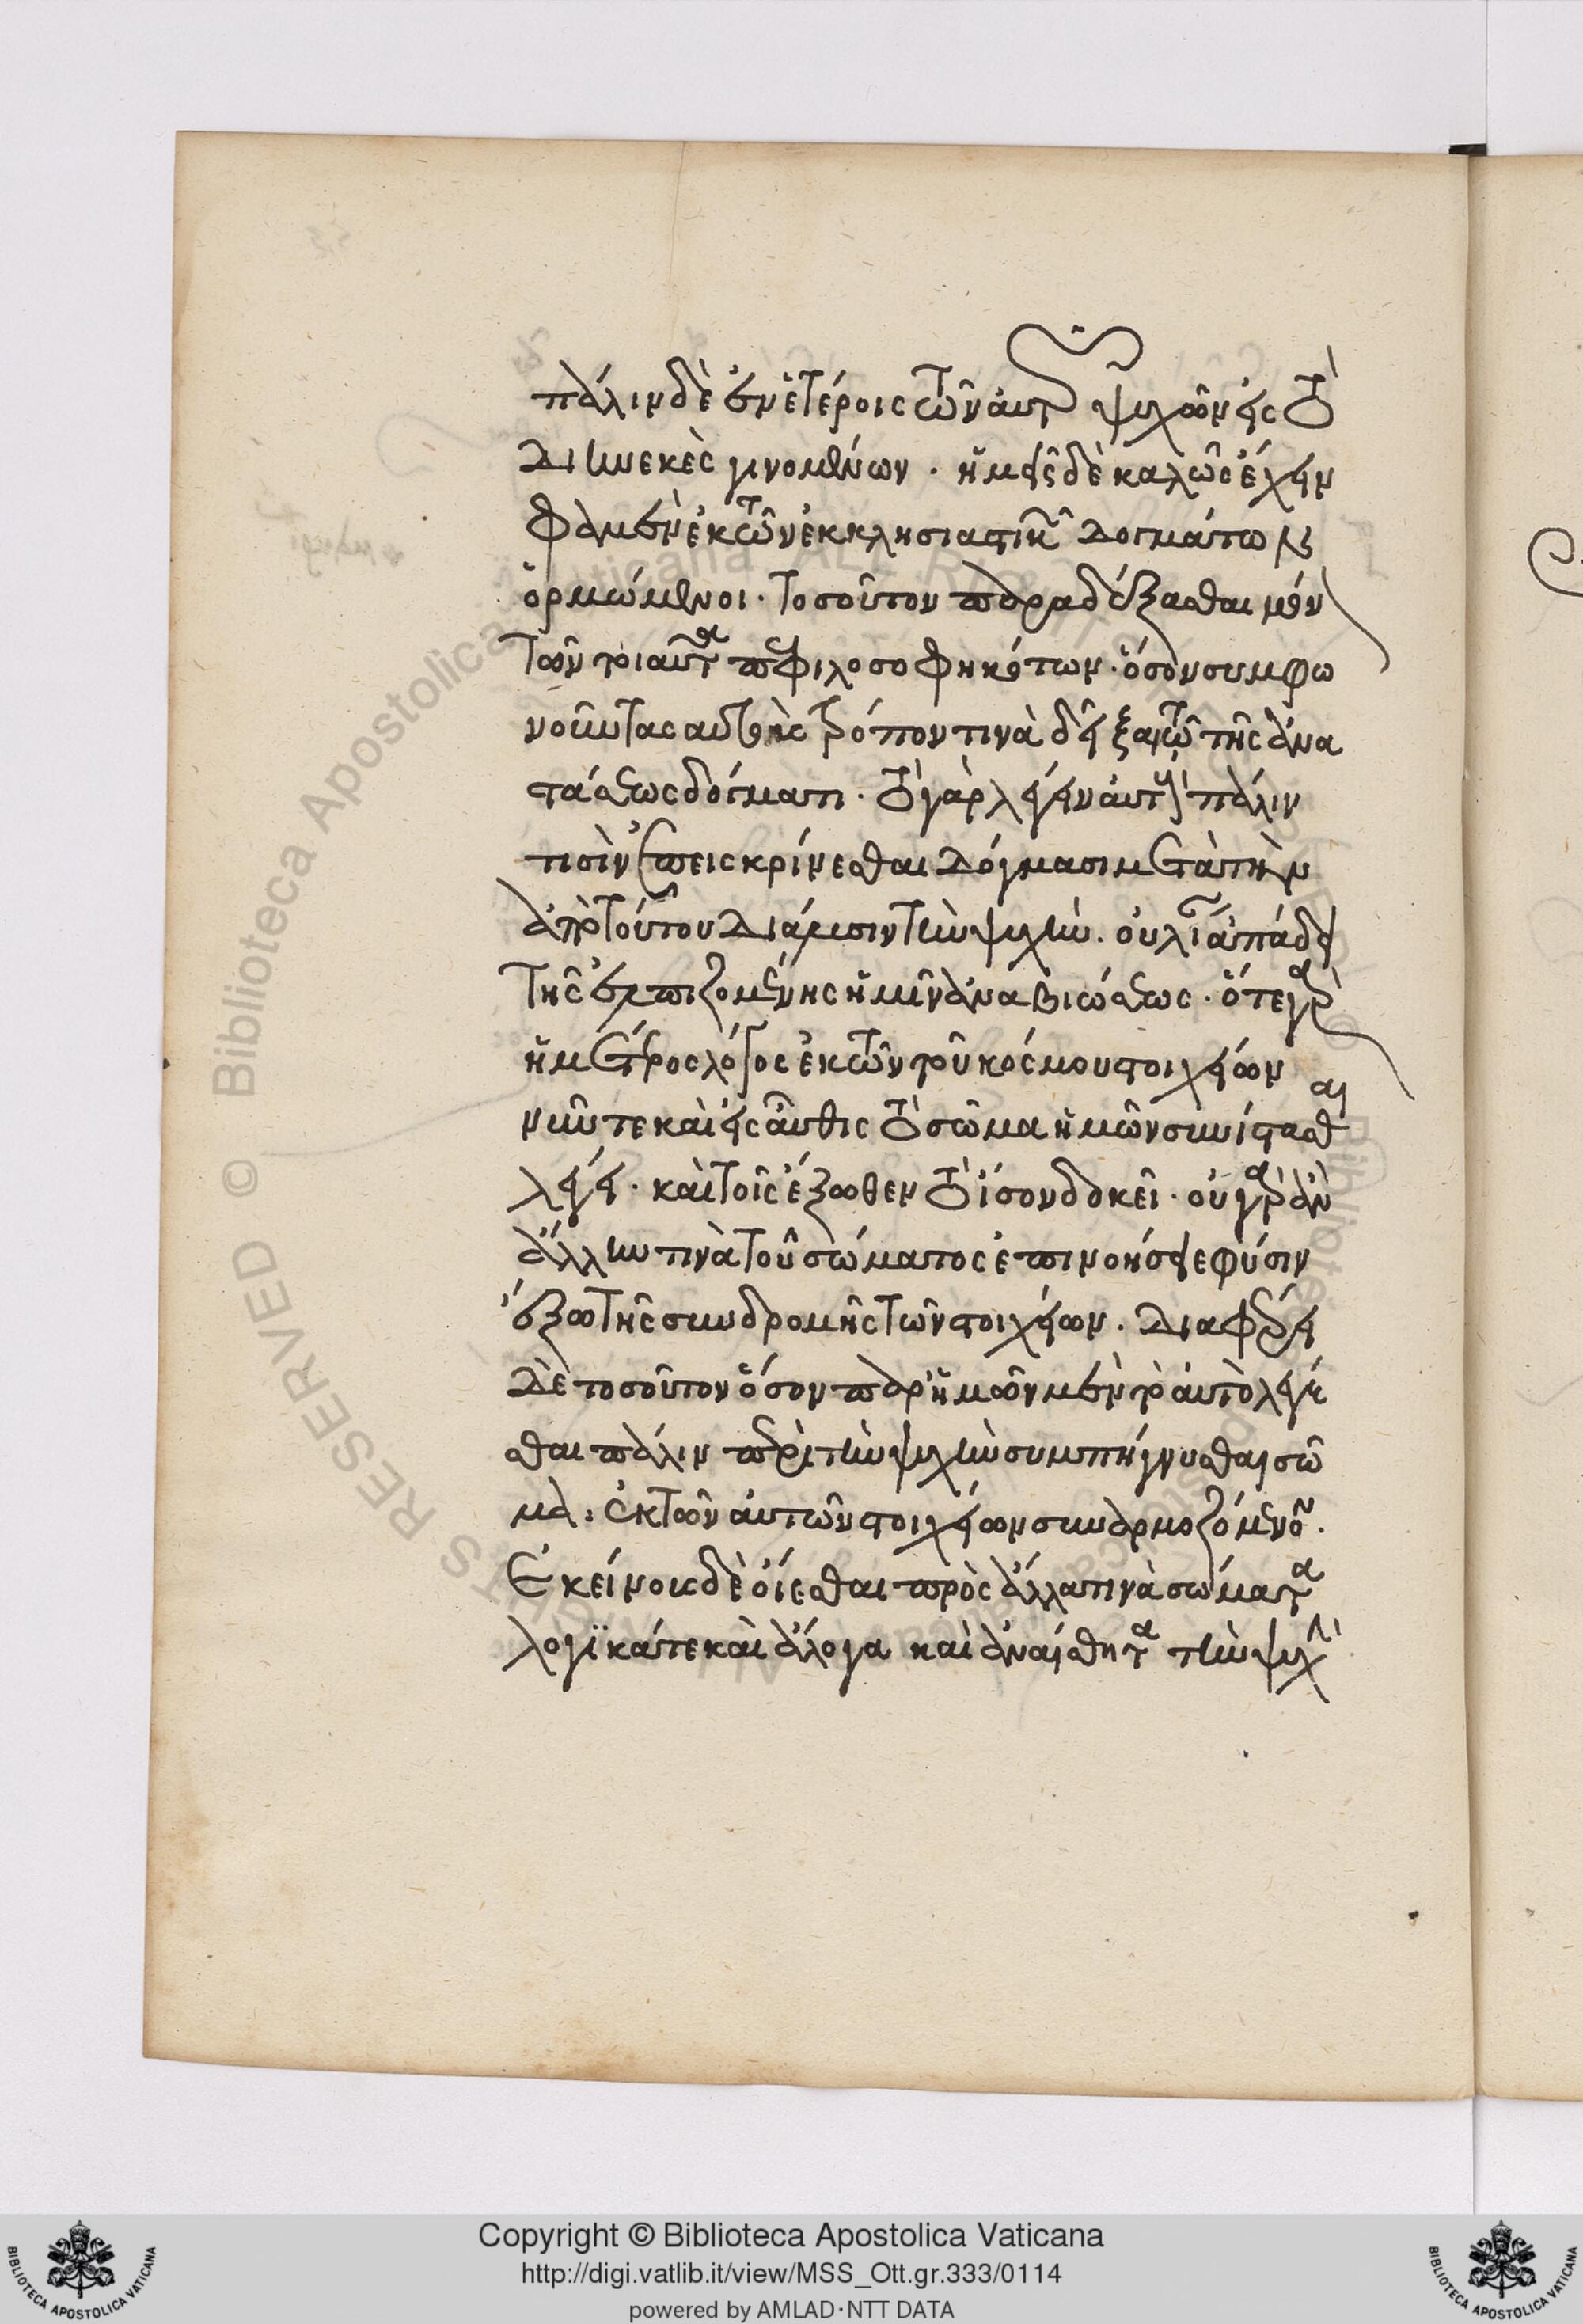 πάλιν δὲ ἐν ἑτέροις τῶν αὐτῶν ψυχῶν εἰς τὸ
διηνεκὲς γινομένων . ἡμεῖς δὲ καλῶς ἔχειν
φαμὲν ἐκ τῶν ἐκκλησιαστικῶν δογμάτων
ὁρμώμενοι . τοσοῦτον παραδέξασθαι μόνον
τῶν τὰ τοιαῦτα πεφιλοσοφηκότων . ὅσον συμφω
νοῦντας αὐτοὺς τρόπον τινὰ δείξαι τῷ τῆς ἀνα
στάσεως δόγματι . τὸ γὰρ λέγειν αὐτοὺς πάλιν
τισὶν ἐπεισκρίνεσθαι δόγμασι μετὰ τὴν
ἀπὸ τούτου διάζευξιν τὴν ψυχήν . οὐ λίαν ἀπάδει
τῆς ἐλπιζομένης ἡμῖν ἀναβιώσεως . ὅτε γὰρ
ἡμέτερος λόγος ἐκ τῶν τοῦ κόσμου στοιχείων
νῦν τε καὶ εἰς αὖθις τὸ σῶμα ἡμῶν συνίστασθαι
λέγει . καὶ τοῖς ἔξωθεν τὸ ἴσον δοκεῖ . οὐ γὰρ ἂν
ἄλλην τινὰ τοῦ σώματος ἐπινοήσειε φύσιν
ἔξω τῆς συνδρομῆς τῶν στοιχείων . διαφέρει
δὲ τοσοῦτον ὅσον παρ' ἡμῶν μὲν τὸ αὐτὸ λέγε
σθαι πάλιν περὶ τὴν ψυχὴν συμπήγνυσθαι σῶ
μα . ἐκ τῶν αὐτῶν στοιχείων συναρμοζόμενον .
Ἐκείνους δὲ οἴεσθαι πρὸς ἄλλα τινὰ σώματα
λογικά τε καὶ ἄλογα καὶ ἀναίσθητα τὴν ψυχὴν
Copyright © Biblioteca Apostolica Vaticana
http://digi.vatlib.it/view/MSS_Ott.gr.333/0114
powered by AMLAD·NTT DATA